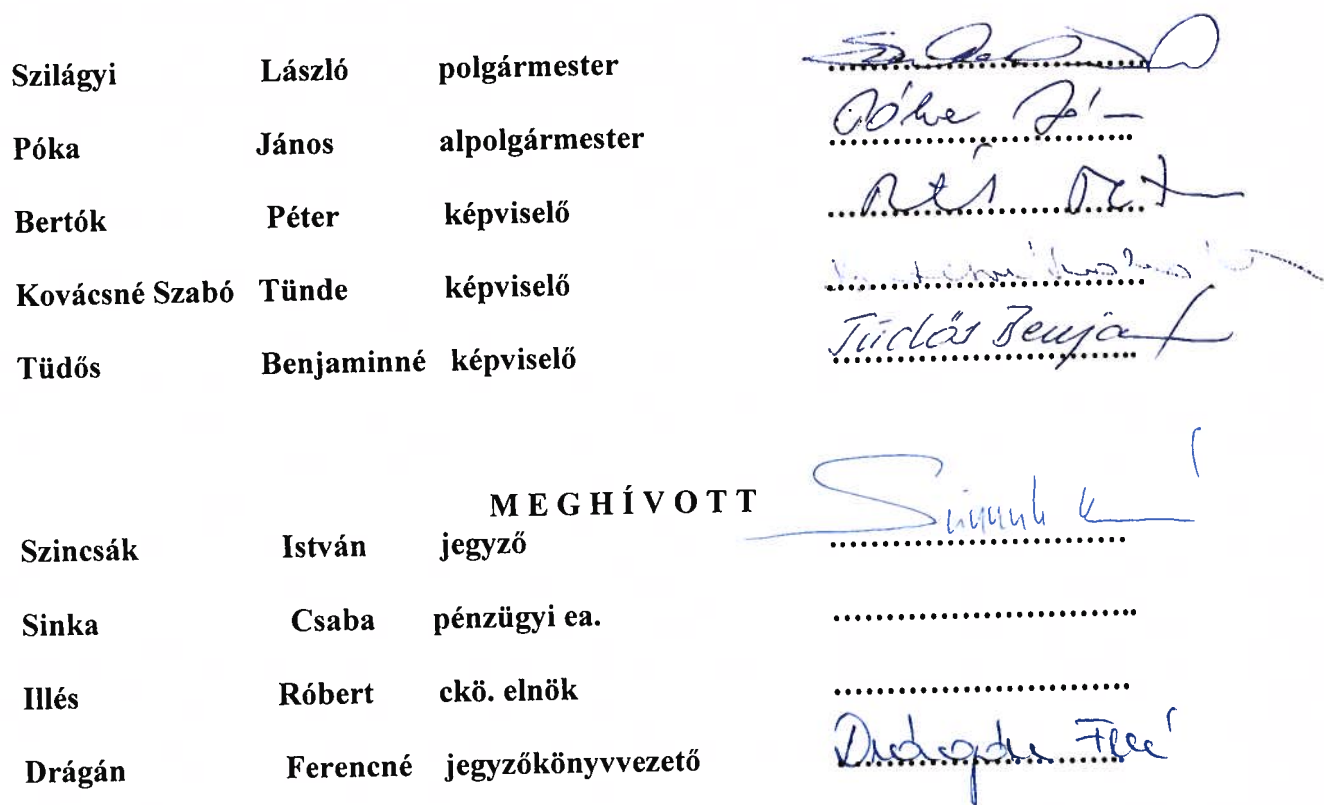 Szilágyi László polgármester
Póka János alpolgármester Póka Já
Bertók Péter képviselő
Kovácsné Szabó Tünde képviselő
Tüdős Benjaminné képviselő Tüdős Benja
MEGHÍVOTT
Szincsák István jegyző
Sinka Csaba pénzügyi ea.
Illés Róbert ckö. elnök
Drágán Ferencné jegyzőkönyvvezető